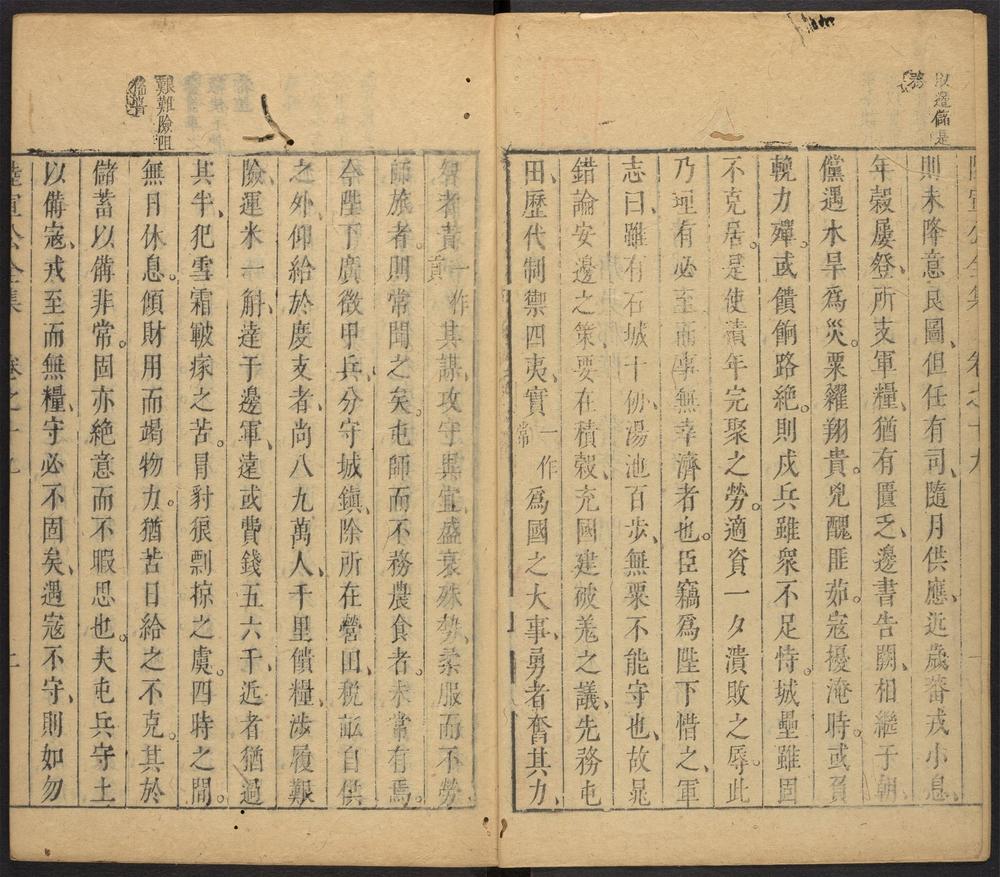 以邊儲是
務
則未降意良圖、但任有司、隨月供應、近歲蕃戎小息、
年穀屢登、所支軍糧、猶有匱乏、邊書告闕、相繼于朝、
儻遇水旱爲災。粟糴翔貴。兇醜匪茹。寇擾淹時。或負
輓力殫。或饋餉路絕。則戍兵雖衆不足恃。城壘雖固
不克居。是使積年完聚之勞。適資一夕潰敗之辱。此
乃理有必至而事無幸濟者也。臣竊爲陛下惜之、軍
志曰、雖有石城十仞、湯池百步、無粟不能守也、故晁
錯論安邊之策、要在積穀、充國建破羌之議、先務屯
田、歷代制禦四夷、實一作常爲國之大事、勇者奮其力、
智者貴一作賁其謀、攻守異宜盛衰殊勢、柔服而不勞
師旅者。則常聞之矣。屯師而不務農食者。未嘗有焉。
今陛下廣徵甲兵、分守城鎮、除所在營田、稅畝自供
之外、仰給於度支者、尚八九萬人、千里饋糧、涉履艱
險、運米一斛、達于邊軍、遠或費錢五六千、近者猶過
其半、犯雪霜皸瘃之苦。冒豺狼剽掠之虞。四時之間。
無日休息。傾財用而竭物力。猶苦日給之不克。其於
儲蓄以備非常。固亦絕意而不暇思也。夫屯兵守土
以備寇、戎至而無糧、守必不固矣、遇寇不守、則如勿
艱難險阻
陸宣公全集 卷之十九 二